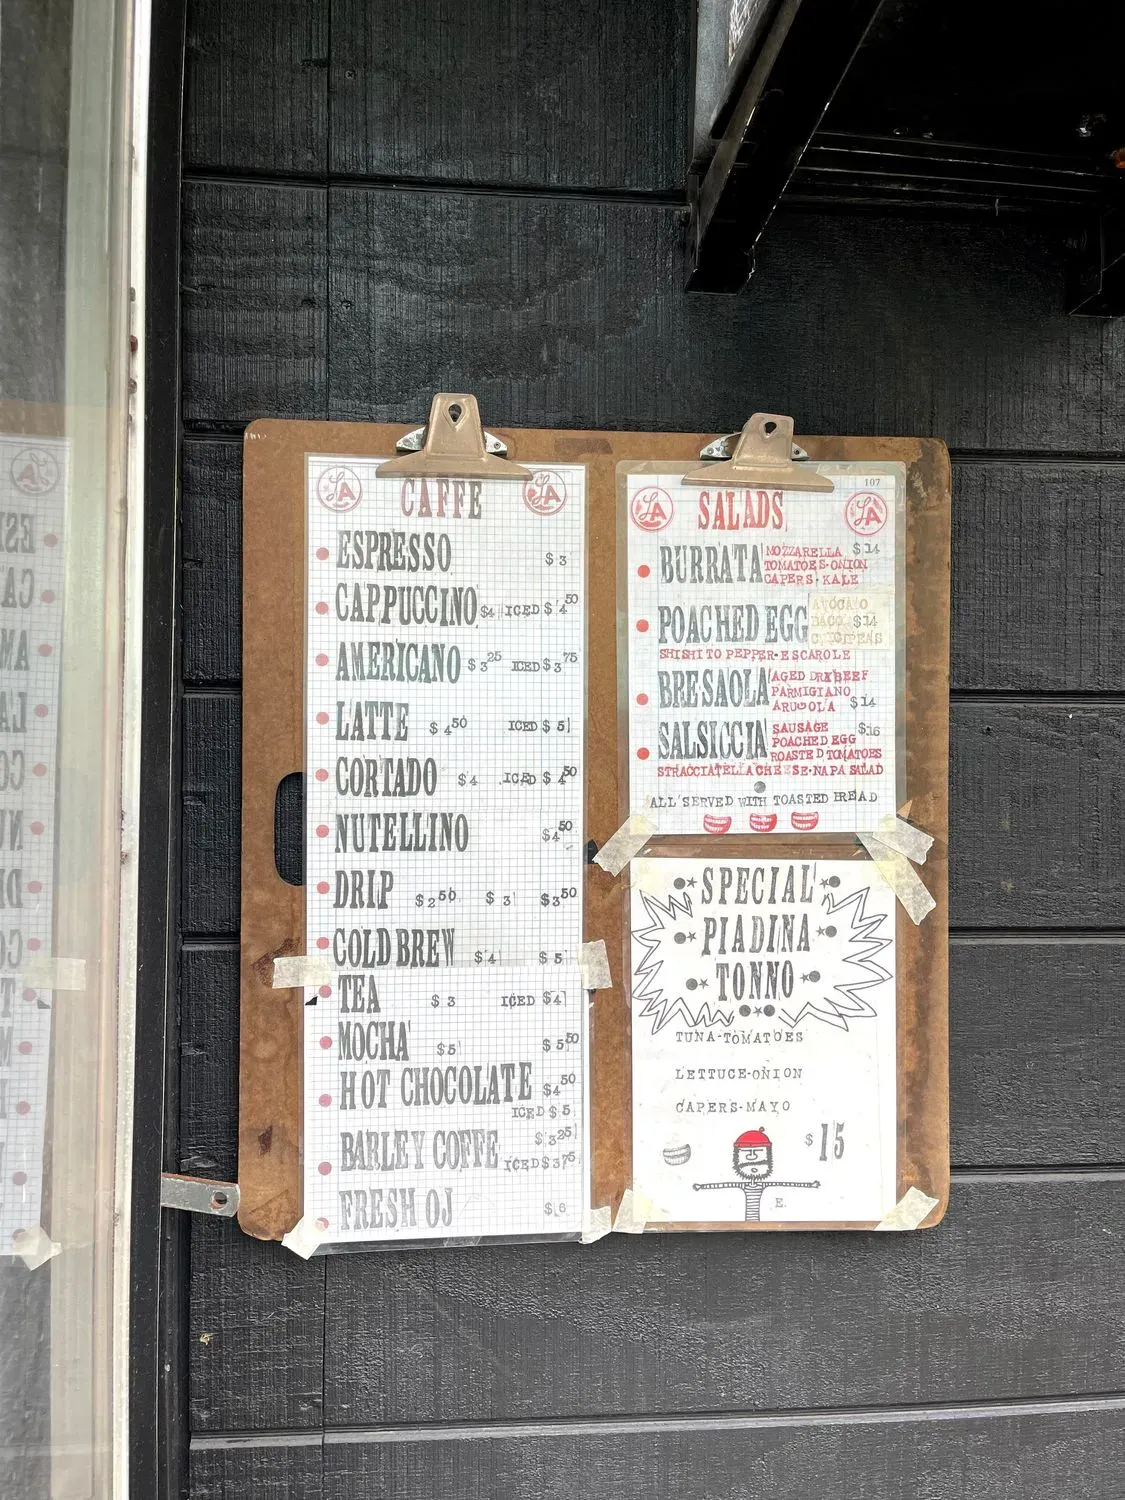 LA
CAFFE
LA
ESPRESSO $3
CAPPUCCINO $4 ICED $4.50
AMERICANO $3.25 ICED $3.75
LATTE $4.50 ICED $5
CORTADO $4 ICED $4.50
NUTELLINO $4.50
DRIP $2.50 $3 $3.50
COLD BREW $4 $5
TEA $3 ICED $4
MOCHA $5 $5.50
HOT CHOCOLATE $4.50
ICED $5
BARLEY COFFE $3.25
ICED $3.75
FRESH OJ $6
107
LA
SALADS
LA
BURRATA MOZZARELLA $14
TOMATOES·ONION
CAPERS·KALE
POACHED EGG AVOCADO
BACON $14
CHICKPEAS
SHISHITO PEPPER·ESCAROLE
BRESAOLA AGED DRY BEEF
PARMIGIANO
ARUGOLA $14
SALSICCIA SAUSAGE $16
POACHED EGG
ROASTED TOMATOES
STRACCIATELLA CHEESE·NAPA SALAD
ALL SERVED WITH TOASTED BREAD
SPECIAL
PIADINA
TONNO
TUNA·TOMATOES
LETTUCE·ONION
CAPERS·MAYO
$15
E.